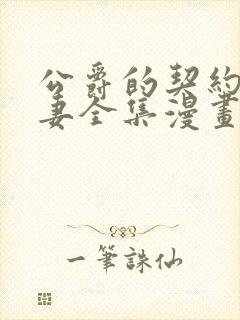 公爵的契約
妻全集漫畫
一筆誅仙